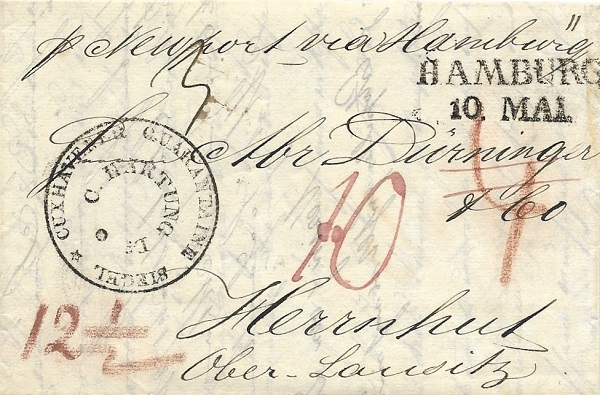 p Newport via Hamburg
HAMBURG
10. MAI.
Herrn Abr Dürninger
& Co
CUXHAVENER QUARANTAINE SIEGEL
C. HARTUNG Dr
10
12 1/2
Herrnhut
Ober-Lausitz